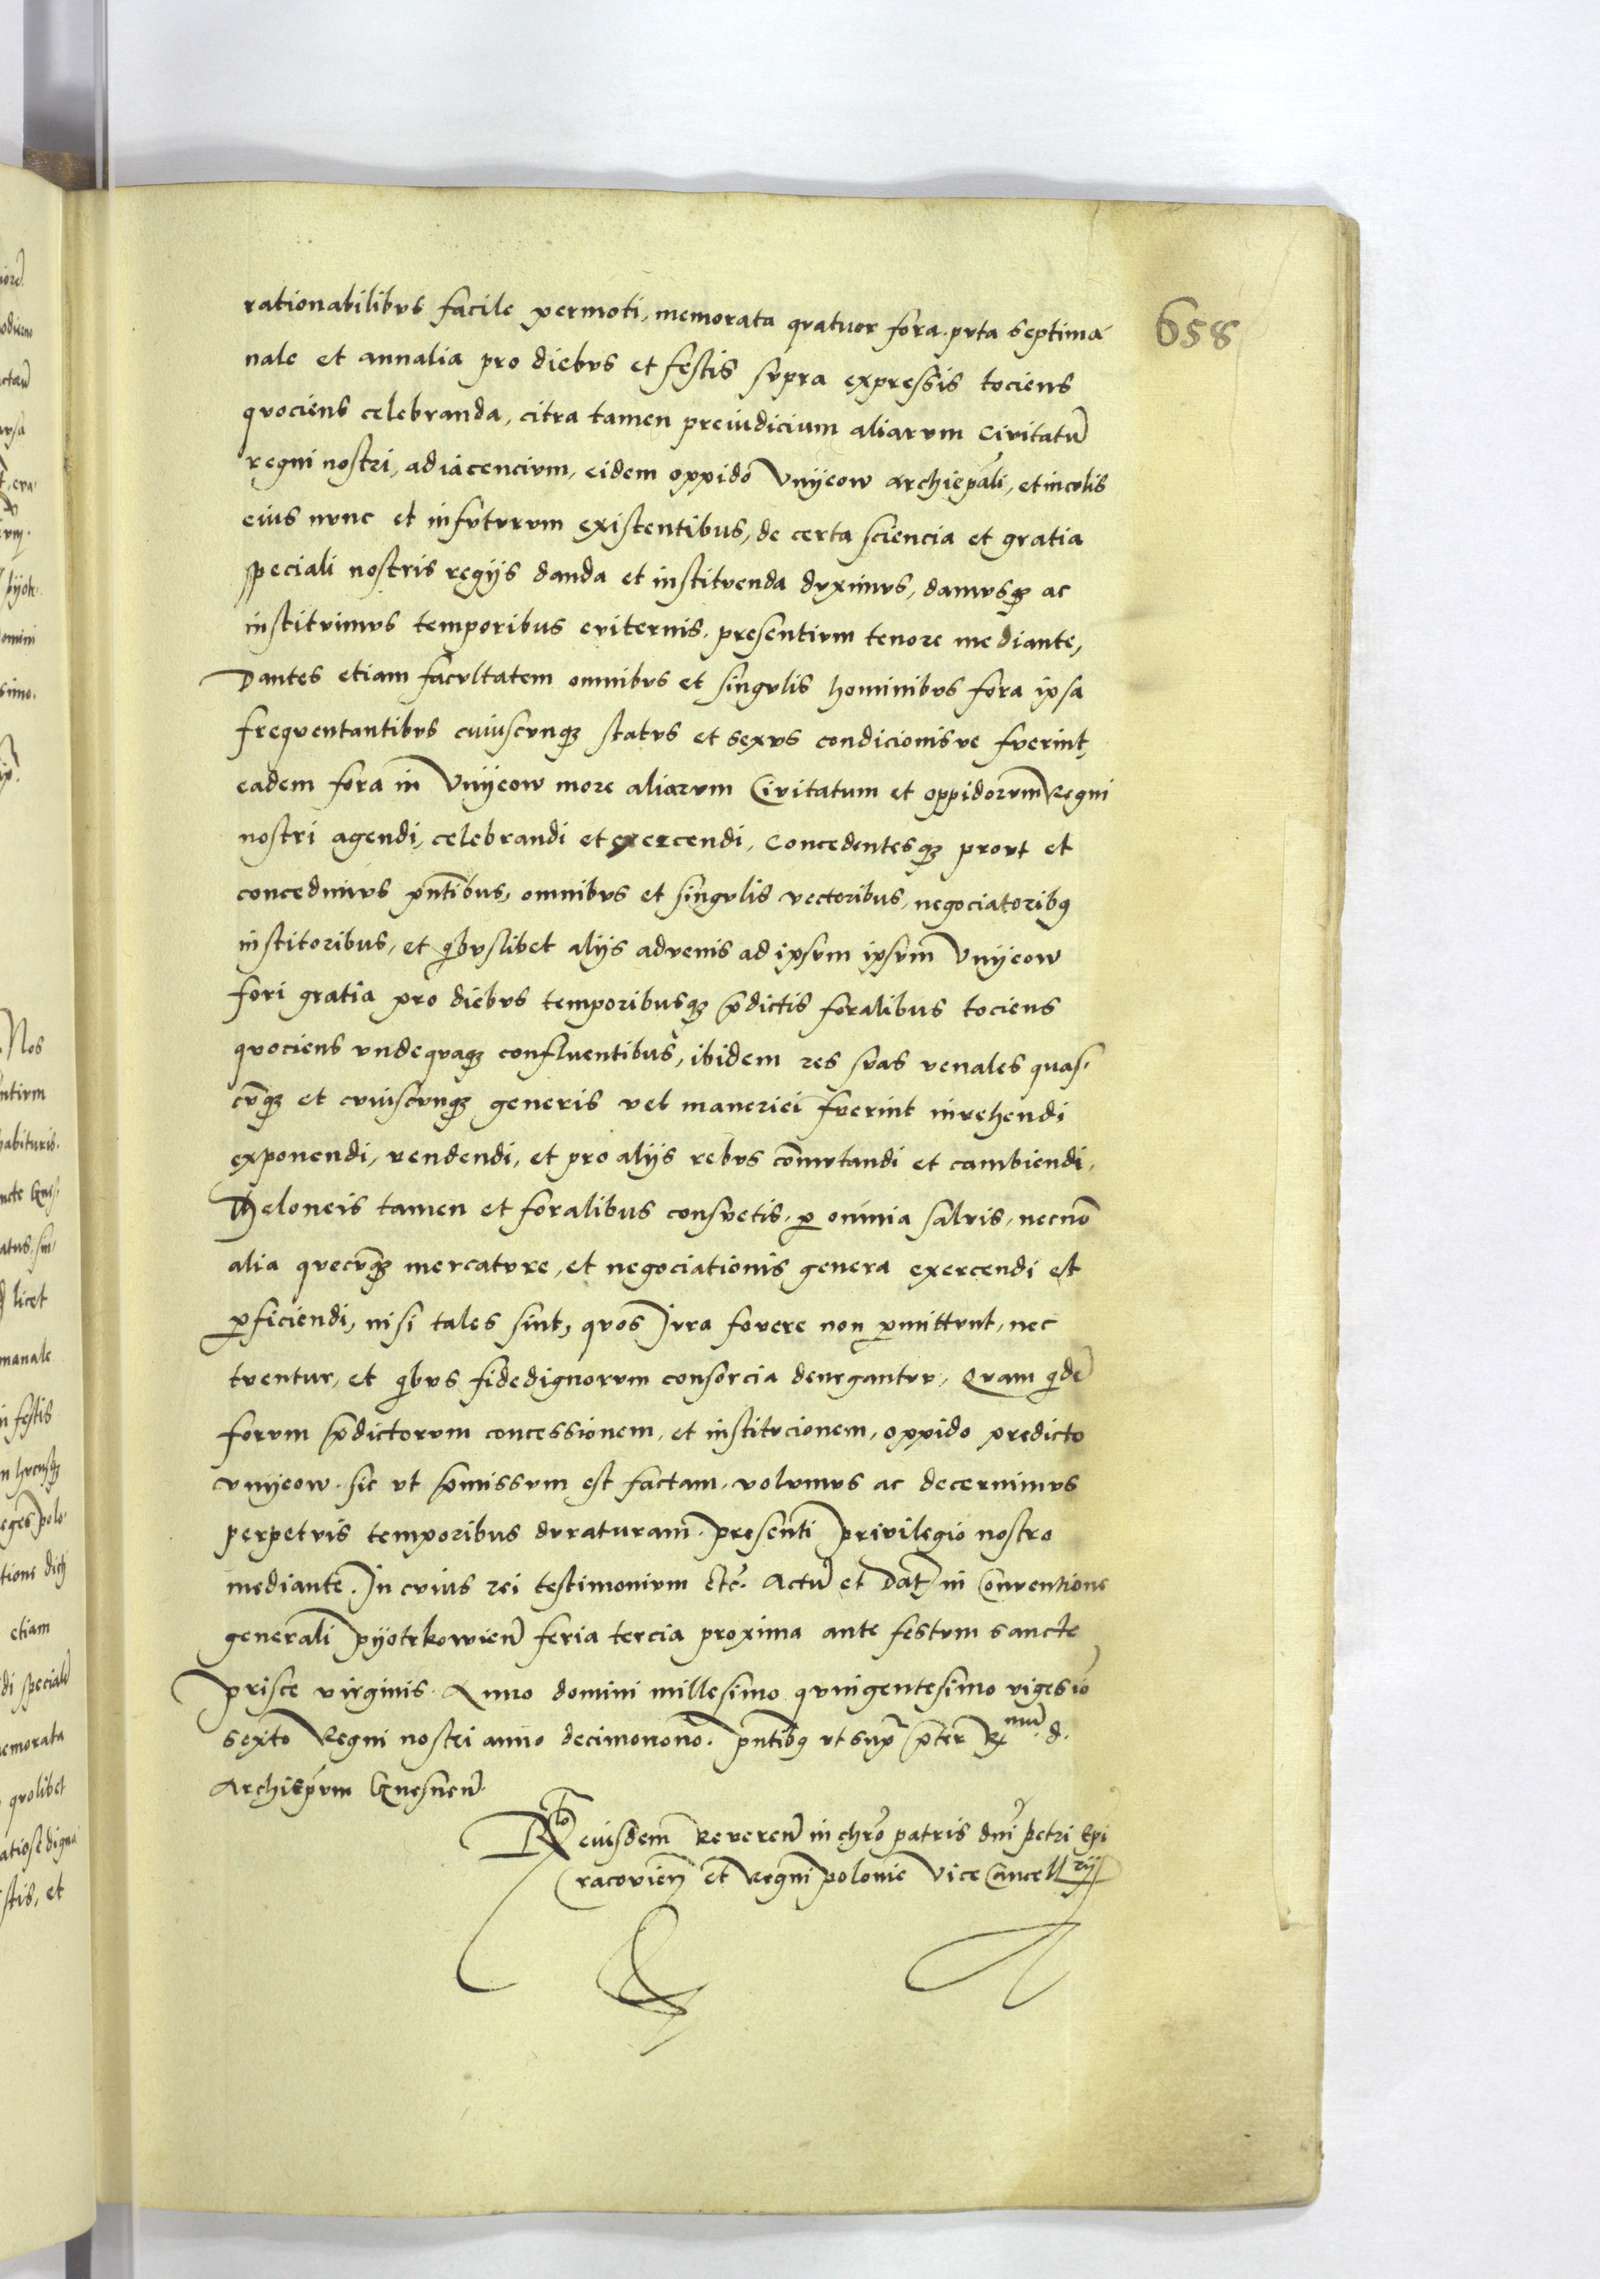 658
rationabilibus facile permoti, memorata quatuor fora puta septima
nale et annalia pro diebus et festis supra expressis tociens
quociens celebranda, citra tamen preiudicium aliarum Civitatũ
regni nostri, adiacencium, eidem oppido Vnyeow archiepali, et incolis
eius nunc et infuturum existentibus, de certa sciencia et gratia
speciali nostris regijs danda et instituenda duximus, damusqꝫ ac
instituimus temporibus eviternis, presentium tenore mediante,
Dantes etiam facultatem omnibus et singulis hominibus fora ipsa
frequentantibus cuiuscunqꝫ status et sexus condicionisue fuerint,
eadem fora in Vnyeow more aliarum Civitatum et oppidorum Regni
nostri agendi, celebrandi et exercendi, Concedentesqꝫ prout et
concedimus pñtibus, omnibus et singulis vectoribus, negociatoribꝫ
institoribus, et qibuslibet alijs advenis ad ipsum ipsum Vnyeow
fori gratia pro diebus temporibusqꝫ p̃dictis foralibus tociens
quociens undequaqꝫ confluentibus, ibidem res suas venales quas
cũqꝫ et cuiuscunqꝫ generis vel maneriei fuerint invehendi
exponendi, vendendi, et pro alijs rebus cõmutandi et cambiendi,
Theloneis tamen et foralibus consuetis, ꝑ omnia salvis, necnõ
alia quecũqꝫ mercature, et negociationis genera exercendi et
ꝑficiendi, nisi tales sint, quos Jura fovere non ꝑmittunt, nec
tuentur, et qibus fidedignorum consorcia denegantur, Quam qidẽ
forum p̃dictorum concessionem, et institucionem, oppido predicto
vnyeow sic ut p̃missum est factam, volumus ac decernimus
perpetuis temporibus duraturam presenti privilegio nostro
mediante. In cuius rei testimonium etc̃. Actũ et Dat in Conventione
generali pyotrkowieñ feria tercia proxima ante festum sancte
prisce virginis Anno domini millesimo quingentesimo vigesio
sexto Regni nostri anno decimonono. pñtibꝫ ut sup̃ p̃ter R mũ d.
Archiep̃um Gnesneñ
Rᵗᵒ eiusdem Revereñ in chro patris dñi petri Ep̃i
Cracovieñ et Regni polonie Vice Cancellrij